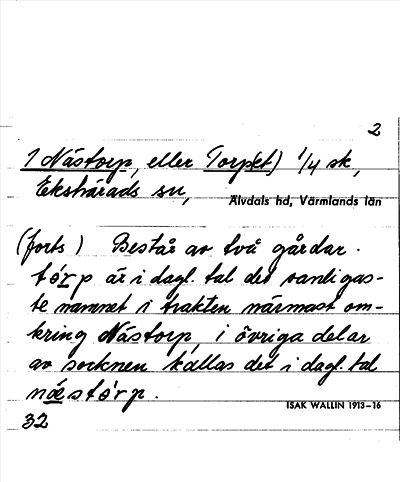 2
1 Nästorp, eller Torp(et) 1/4 sk,
Ekshärads sn, Älvdals hd, Värmlands län
(forts) Består av två gårdar.
tó̱rp är i dagl. tal det vanligas-
te namnet i trakten närmast om-
kring Nästorp, i övriga delar
av socknen kallas det i dagl. tal
næstórp.
ISAK WALLIN 1913–16
32